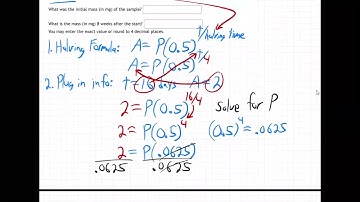 What was the initial mass (in mg) of the sample?
What is the mass (in mg) 8 weeks after the start?
You may enter the exact value or round to 4 decimal places.
1. Halving Formula: A = P(0.5)^t/halving time
A = P(0.5)^t/4
2. Plug in info: t = 16 days A = 2
2 = P(0.5)^16/4 solve for P
2 = P(0.5)^4 (0.5)^4 = .0625
2 = P(.0625)
.0625 .0625